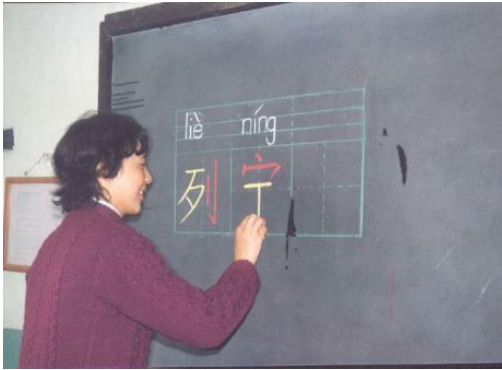 liè níng
列宁